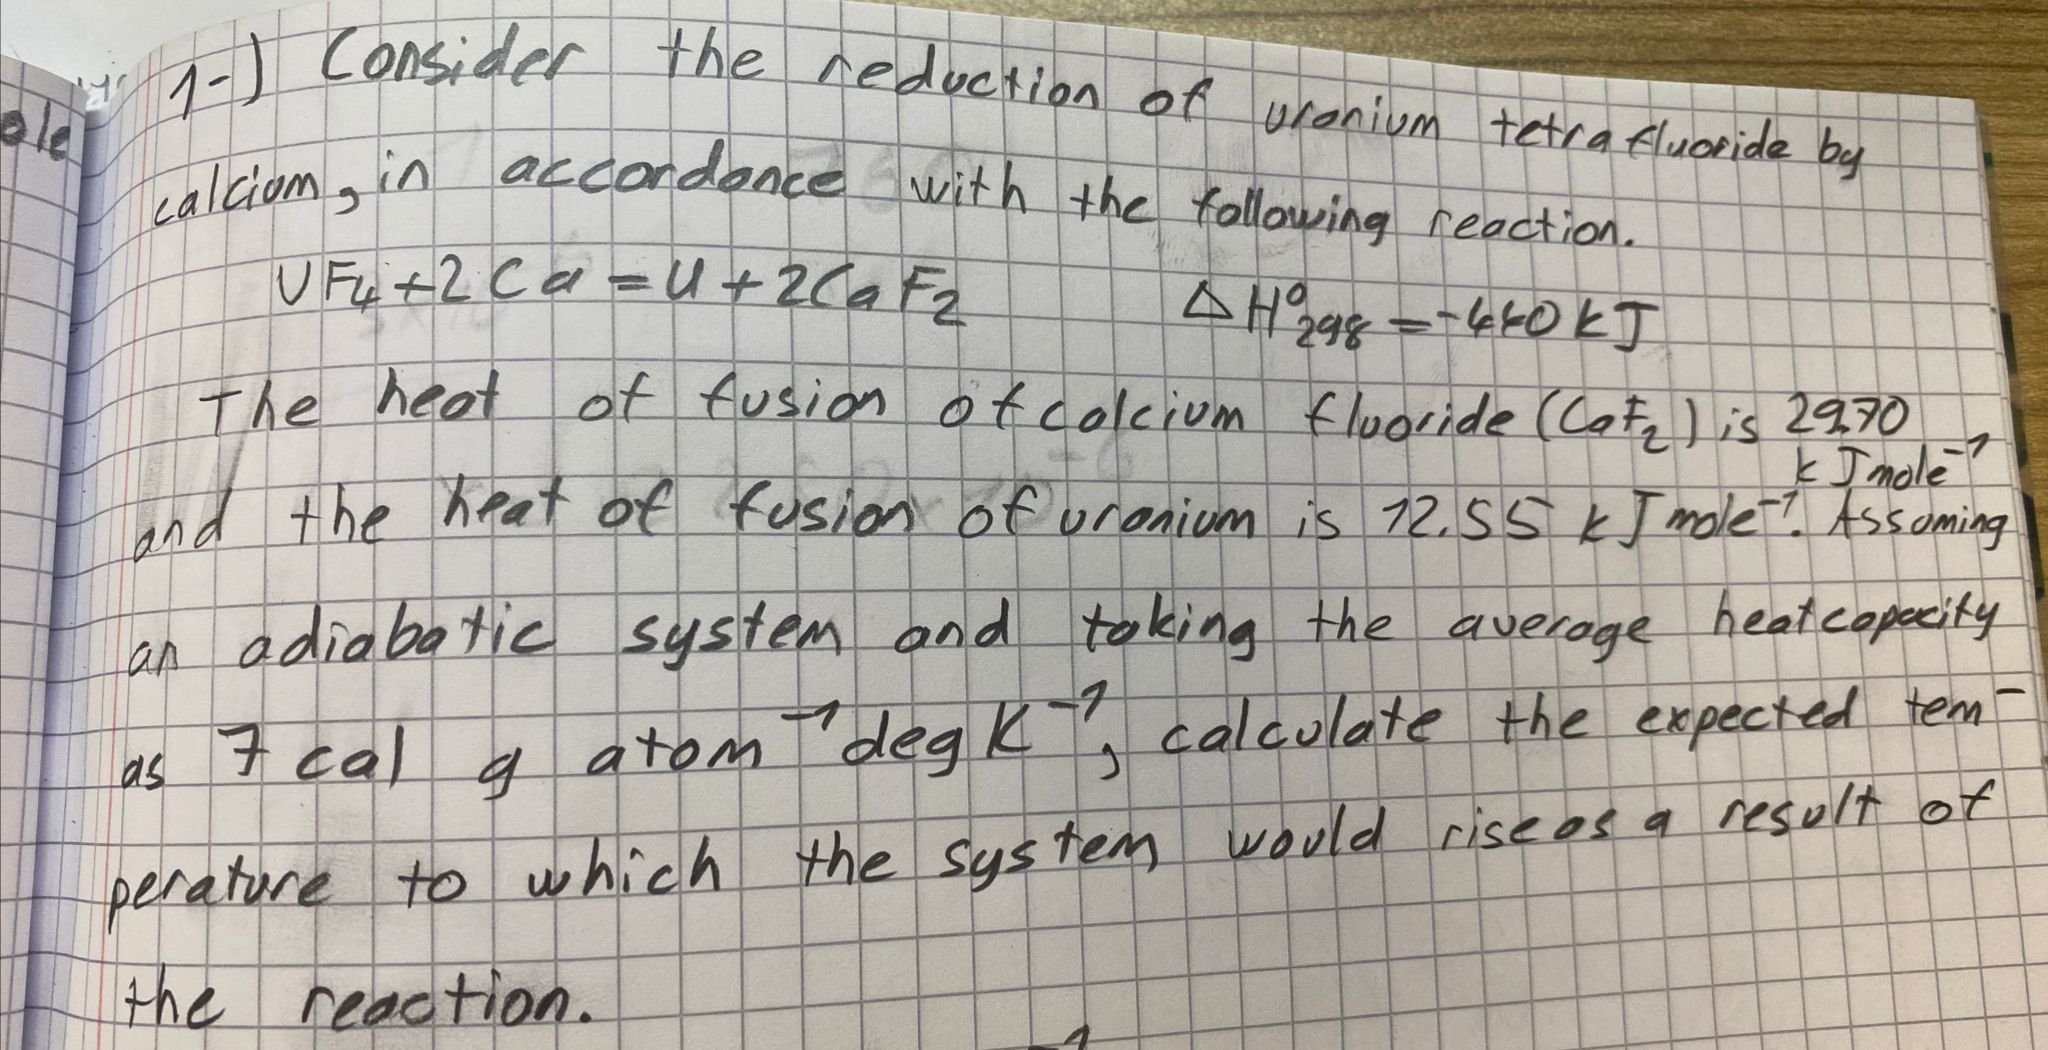 ole
1-) Consider the reduction of uranium tetrafluoride by
calcium, in accordance with the following reaction.
UF₄ + 2Ca = U + 2CaF₂ ΔH°₂₉₈ = -440 kJ
The heat of fusion of calcium fluoride (CaF₂) is 29.70
kJ mole⁻¹
and the heat of fusion of uranium is 12.55 kJ mole⁻¹. Assuming
an adiabatic system and taking the average heat capacity
as 7 cal g atom⁻¹ deg K⁻¹, calculate the expected tem-
perature to which the system would rise as a result of
the reaction.